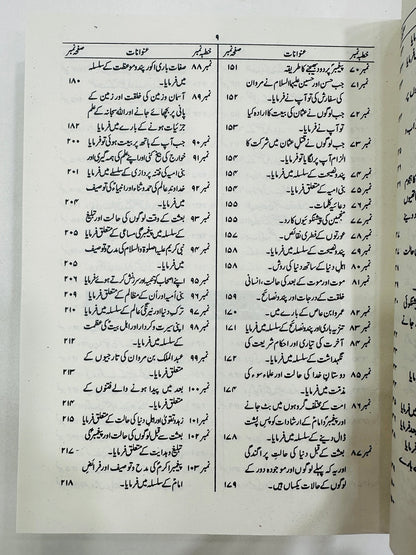 ۹
خطبہ نمبر عنوانات صفحہ نمبر
نمبر ۷۰ پیغمبرؐ پر درود بھیجنے کا طریقہ ۱۵۱
نمبر ۷۱ جب حسنؑ اور حسینؑ علیہما السلام نے مروان
کی سفارش کی تو آپ نے فرمایا۔ ۱۵۲
نمبر ۷۲ جب لوگوں نے عثمان کی بیعت کا ارادہ کیا
تو آپ نے فرمایا۔ ۱۵۳
نمبر ۷۳ جب لوگوں نے قتل عثمان میں شرکت کا
الزام آپ پر لگایا تو فرمایا۔ ۱۵۴
نمبر ۷۴ پند و نصیحت کے سلسلہ میں فرمایا۔ ۱۵۴
نمبر ۷۵ بنی امیہ کے متعلق فرمایا۔ ۱۵۴
نمبر ۷۶ دعائیہ کلمات۔ ۱۵۵
نمبر ۷۷ منجمین کی پیشنگوئیوں کا رد۔ ۱۵۵
نمبر ۷۸ عورتوں کے فطری نقائص۔ ۱۵۷
نمبر ۷۹ پند و نصیحت کے سلسلہ میں فرمایا۔ ۱۵۸
نمبر ۸۰ اہل دنیا کے ساتھ دنیا کی روش۔ ۱۵۸
نمبر ۸۱ موت اور موت کے بعد کی حالت، انسانی
خلقت کے درجات اور پند و نصائح۔ ۱۵۹
نمبر ۸۲ عمرو ابن عاص کے بارے میں۔ ۱۷۰
نمبر ۸۳ تنزیہ باری اور پند و نصائح کے سلسلہ میں فرمایا ۱۷۱
نمبر ۸۴ آخرت کی تیاری اور احکام شریعت کی
نگہداشت کے سلسلہ میں فرمایا۔ ۱۷۲
نمبر ۸۵ دوستان خدا کی حالت اور علماء سوء کی
مذمت میں فرمایا۔ ۱۷۴
نمبر ۸۶ امت کے مختلف گروہوں میں بٹ جانے
اور پیغمبرؐ و امامؑ کے ارشادات کو پس پشت
ڈال دینے کے سلسلہ میں فرمایا۔ ۱۷۸
نمبر ۸۷ بعثت کے قبل دنیا کی حالت پراگندگی
اور یہ کہ پہلے لوگوں اور موجودہ دور کے
لوگوں کے حالات یکساں ہیں۔ ۱۷۹
خطبہ نمبر عنوانات صفحہ نمبر
نمبر ۸۸ صفات باری اور پند و موعظت کے سلسلہ
میں فرمایا۔ ۱۸۰
نمبر ۸۹ آسمان و زمین کی خلقت اور زمین کے
پانی پر بچھائے جانے اور اللہ سبحانہ کے علم
جزئیات ہونے کے بارے میں فرمایا ۱۸۲
نمبر ۹۰ جب آپ کے ہاتھ پر بیعت ہوئی تو فرمایا ۲۰۰
نمبر ۹۱ خوارج کی بیخ کنی اور اپنے علم کی ہمہ گیری اور
بنی امیہ کی فتنہ پردازی کے سلسلے میں فرمایا ۲۰۱
نمبر ۹۲ خداوند عالم کی حمد و ثناء اور انبیاء کی توصیف
میں فرمایا۔
نمبر ۹۳ بعثت کے وقت لوگوں کی حالت اور تبلیغ
کے سلسلہ میں پیغمبرؐ کی مساعی کے متعلق فرمایا ۲۰۵
نمبر ۹۴ نبی کریم علیہ الصلوۃ والسلام کی مدح و توصیف
میں فرمایا۔ ۲۰۵
نمبر ۹۵ اپنے اصحاب کو تنبیہ اور سرزنش کرتے ہوئے فرمایا ۲۰۶
نمبر ۹۶ بنی امیہ اور ان کے مظالم کے متعلق فرمایا ۲۰۹
نمبر ۹۷ ترک دنیا اور نیرنگی عالم کے سلسلہ میں فرمایا ۲۱۰
نمبر ۹۸ اپنی سیرت و کردار اور اہل بیت کی عظمت
کے سلسلہ میں فرمایا۔ ۲۱۲
نمبر ۹۹ عبدالملک بن مروان کی تاراجیوں کے
متعلق فرمایا۔ ۲۱۳
نمبر ۱۰۰ بعد میں پیدا ہونے والے فتنوں کے
متعلق فرمایا۔ ۲۱۴
نمبر ۱۰۱ زہد و تقویٰ اور اہل دنیا کی حالت کے متعلق فرمایا ۲۱۵
نمبر ۱۰۲ بعثت سے قبل لوگوں کی حالت اور پیغمبرؐ کی
تبلیغ و ہدایت کے متعلق فرمایا۔ ۲۱۷
نمبر ۱۰۳ پیغمبر اکرمؐ کی مدح و توصیف اور فرائض
امام کے سلسلہ میں فرمایا۔ ۲۱۸